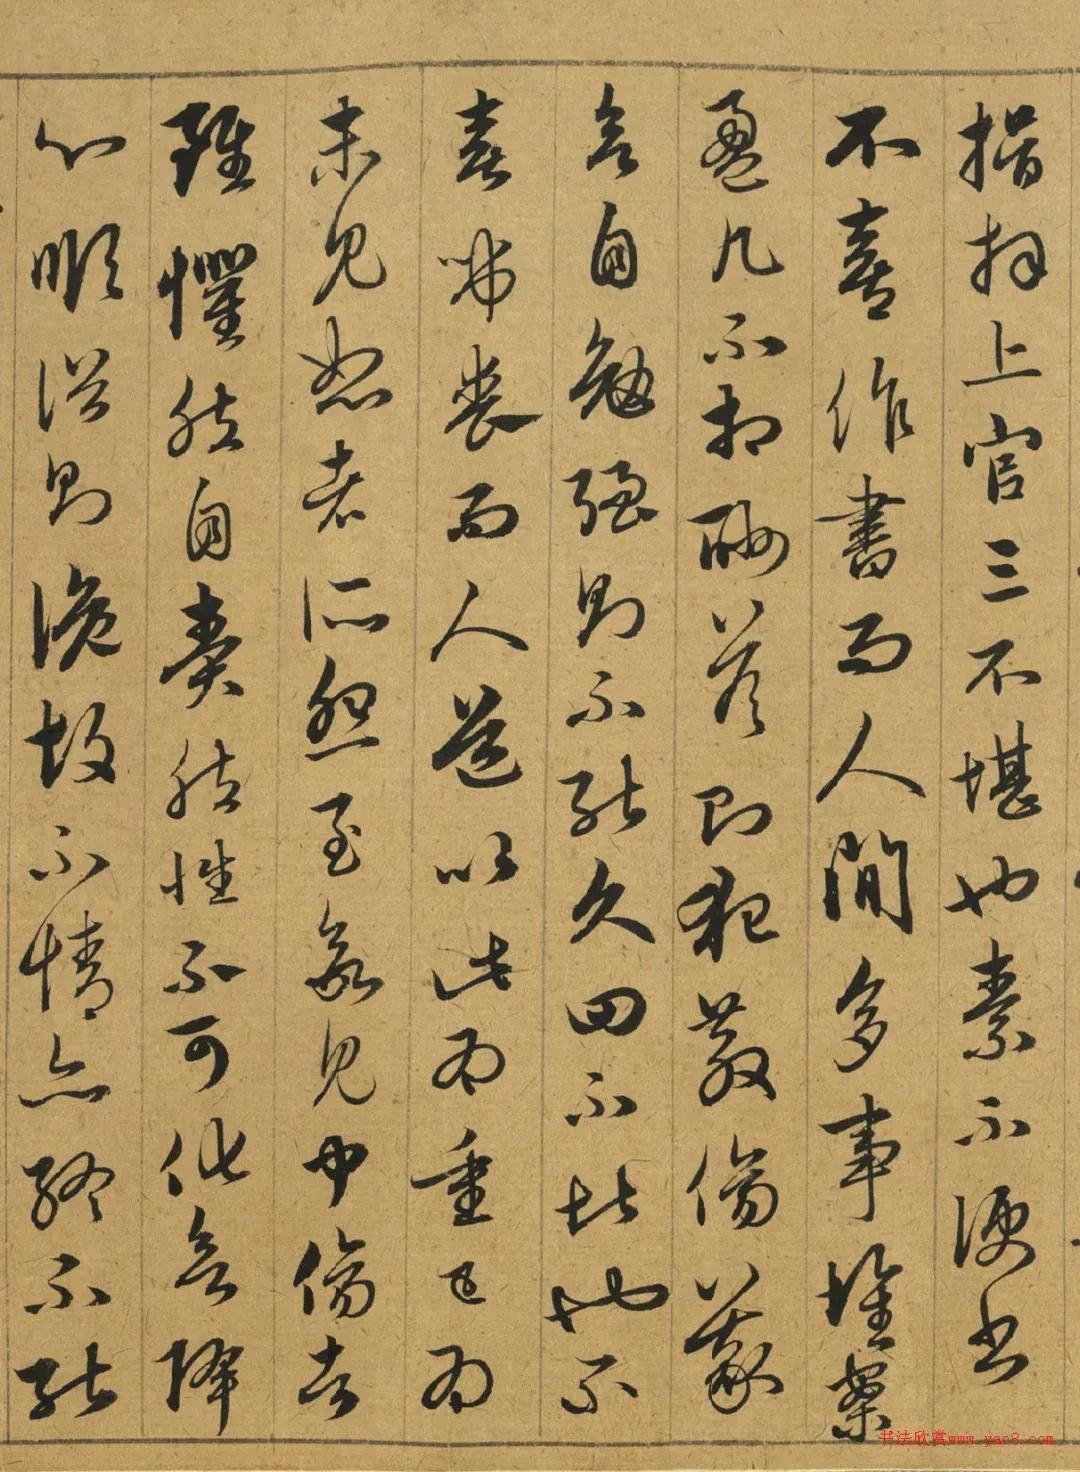 揖拜上官三不堪也素不便书
不喜作書而人間多事堆案
盈几不相酬答即犯教傷義
欲自勉強則不能久四不堪也不
喜吊喪而人道以此為重已為
未見恕者所怨至欲見中傷者
雖懼然自責然性不可化欲降
心順俗則詭故不情亦終不能
书法欣赏www.yac8.com